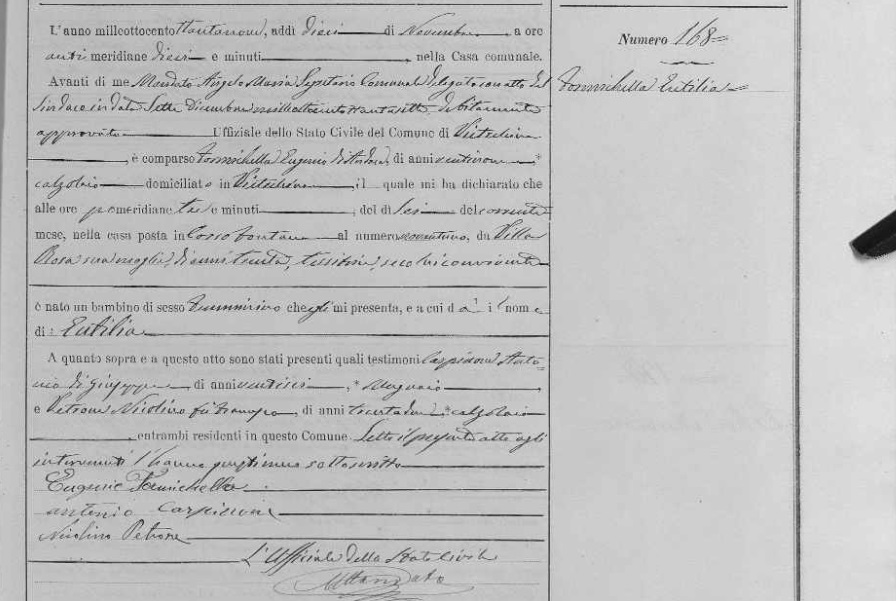 L'anno millottocento ttantanove, addì dieci di Novembre a ore
anti meridiane dieci e minuti , nella Casa comunale.
Avanti di me Mandato Angelo Maria Segretario Comunale delegato con atto del
Sindaco in data Sette Dicembre mille ottocento ottantasette debitamente
approvato Uffiziale dello Stato Civile del Comune di
, è comparso Formichella Eugenio di , di anni ventinove
calzolaio domiciliato in , il quale mi ha dichiarato che
alle ore pomeridiane tre e minuti , del dì sei del corrente
mese, nella casa posta in Corso Fontana al numero , da Villa
Rosa sua moglie, di anni trenta, tessitrice, seco lui convivente
è nato un bambino di sesso femminino che egli mi presenta, e a cui dà il nome
di Eutilia
A quanto sopra e a questo atto sono stati presenti quali testimoni Carpinone Anto-
nio di Giuseppe , di anni ventisei , Mugnaio
e Petrone Nicolino fu , di anni trentadue calzolaio
, entrambi residenti in questo Comune. Letto il presente atto agli
intervenuti l'hanno sottoscritto
Eugenio Formichella
antonio Carpinone
Nicolino Petrone
L'Uffiziale dello Stato Civile
AMandato
Numero 168
Formichella Eutilia